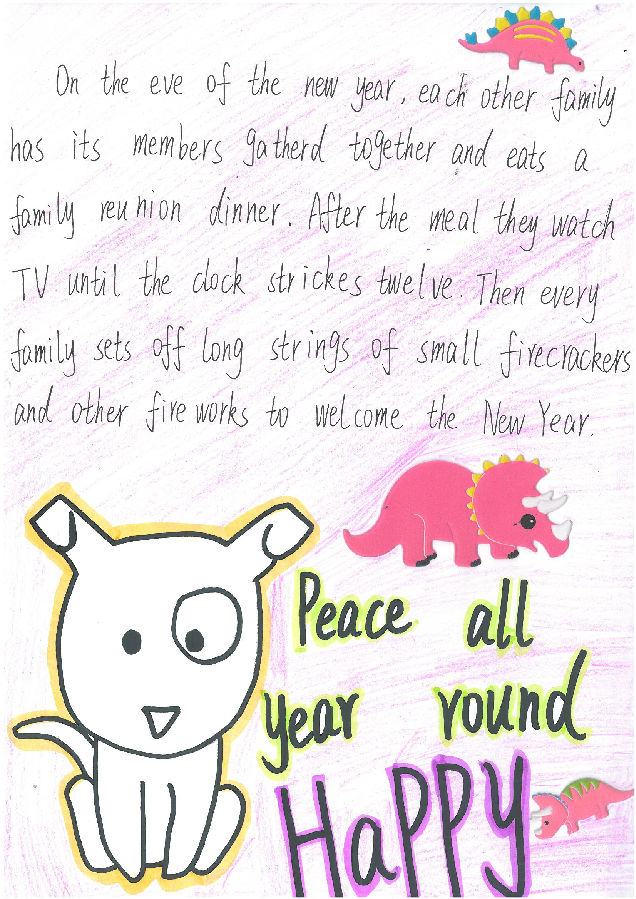 On the eve of the new year, each other family
has its members gatherd together and eats a
family reunion dinner. After the meal they watch
TV until the clock strickes twelve. Then every
family sets off long strings of small firecrackers
and other fireworks to welcome the New Year.
Peace all
year round
HaPPy